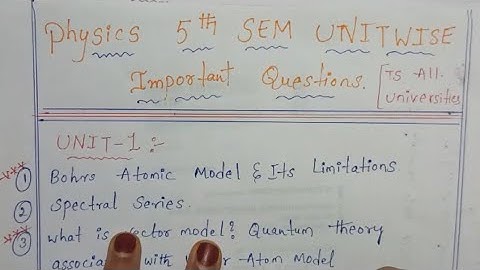 Physics 5th SEM UNITWISE
Important Questions. [TS All universities
UNIT-1 :-
*** ① Bohrs Atomic Model & Its Limitations
② Spectral Series.
*** ③ what is vector model? Quantum theory
with Atom Model